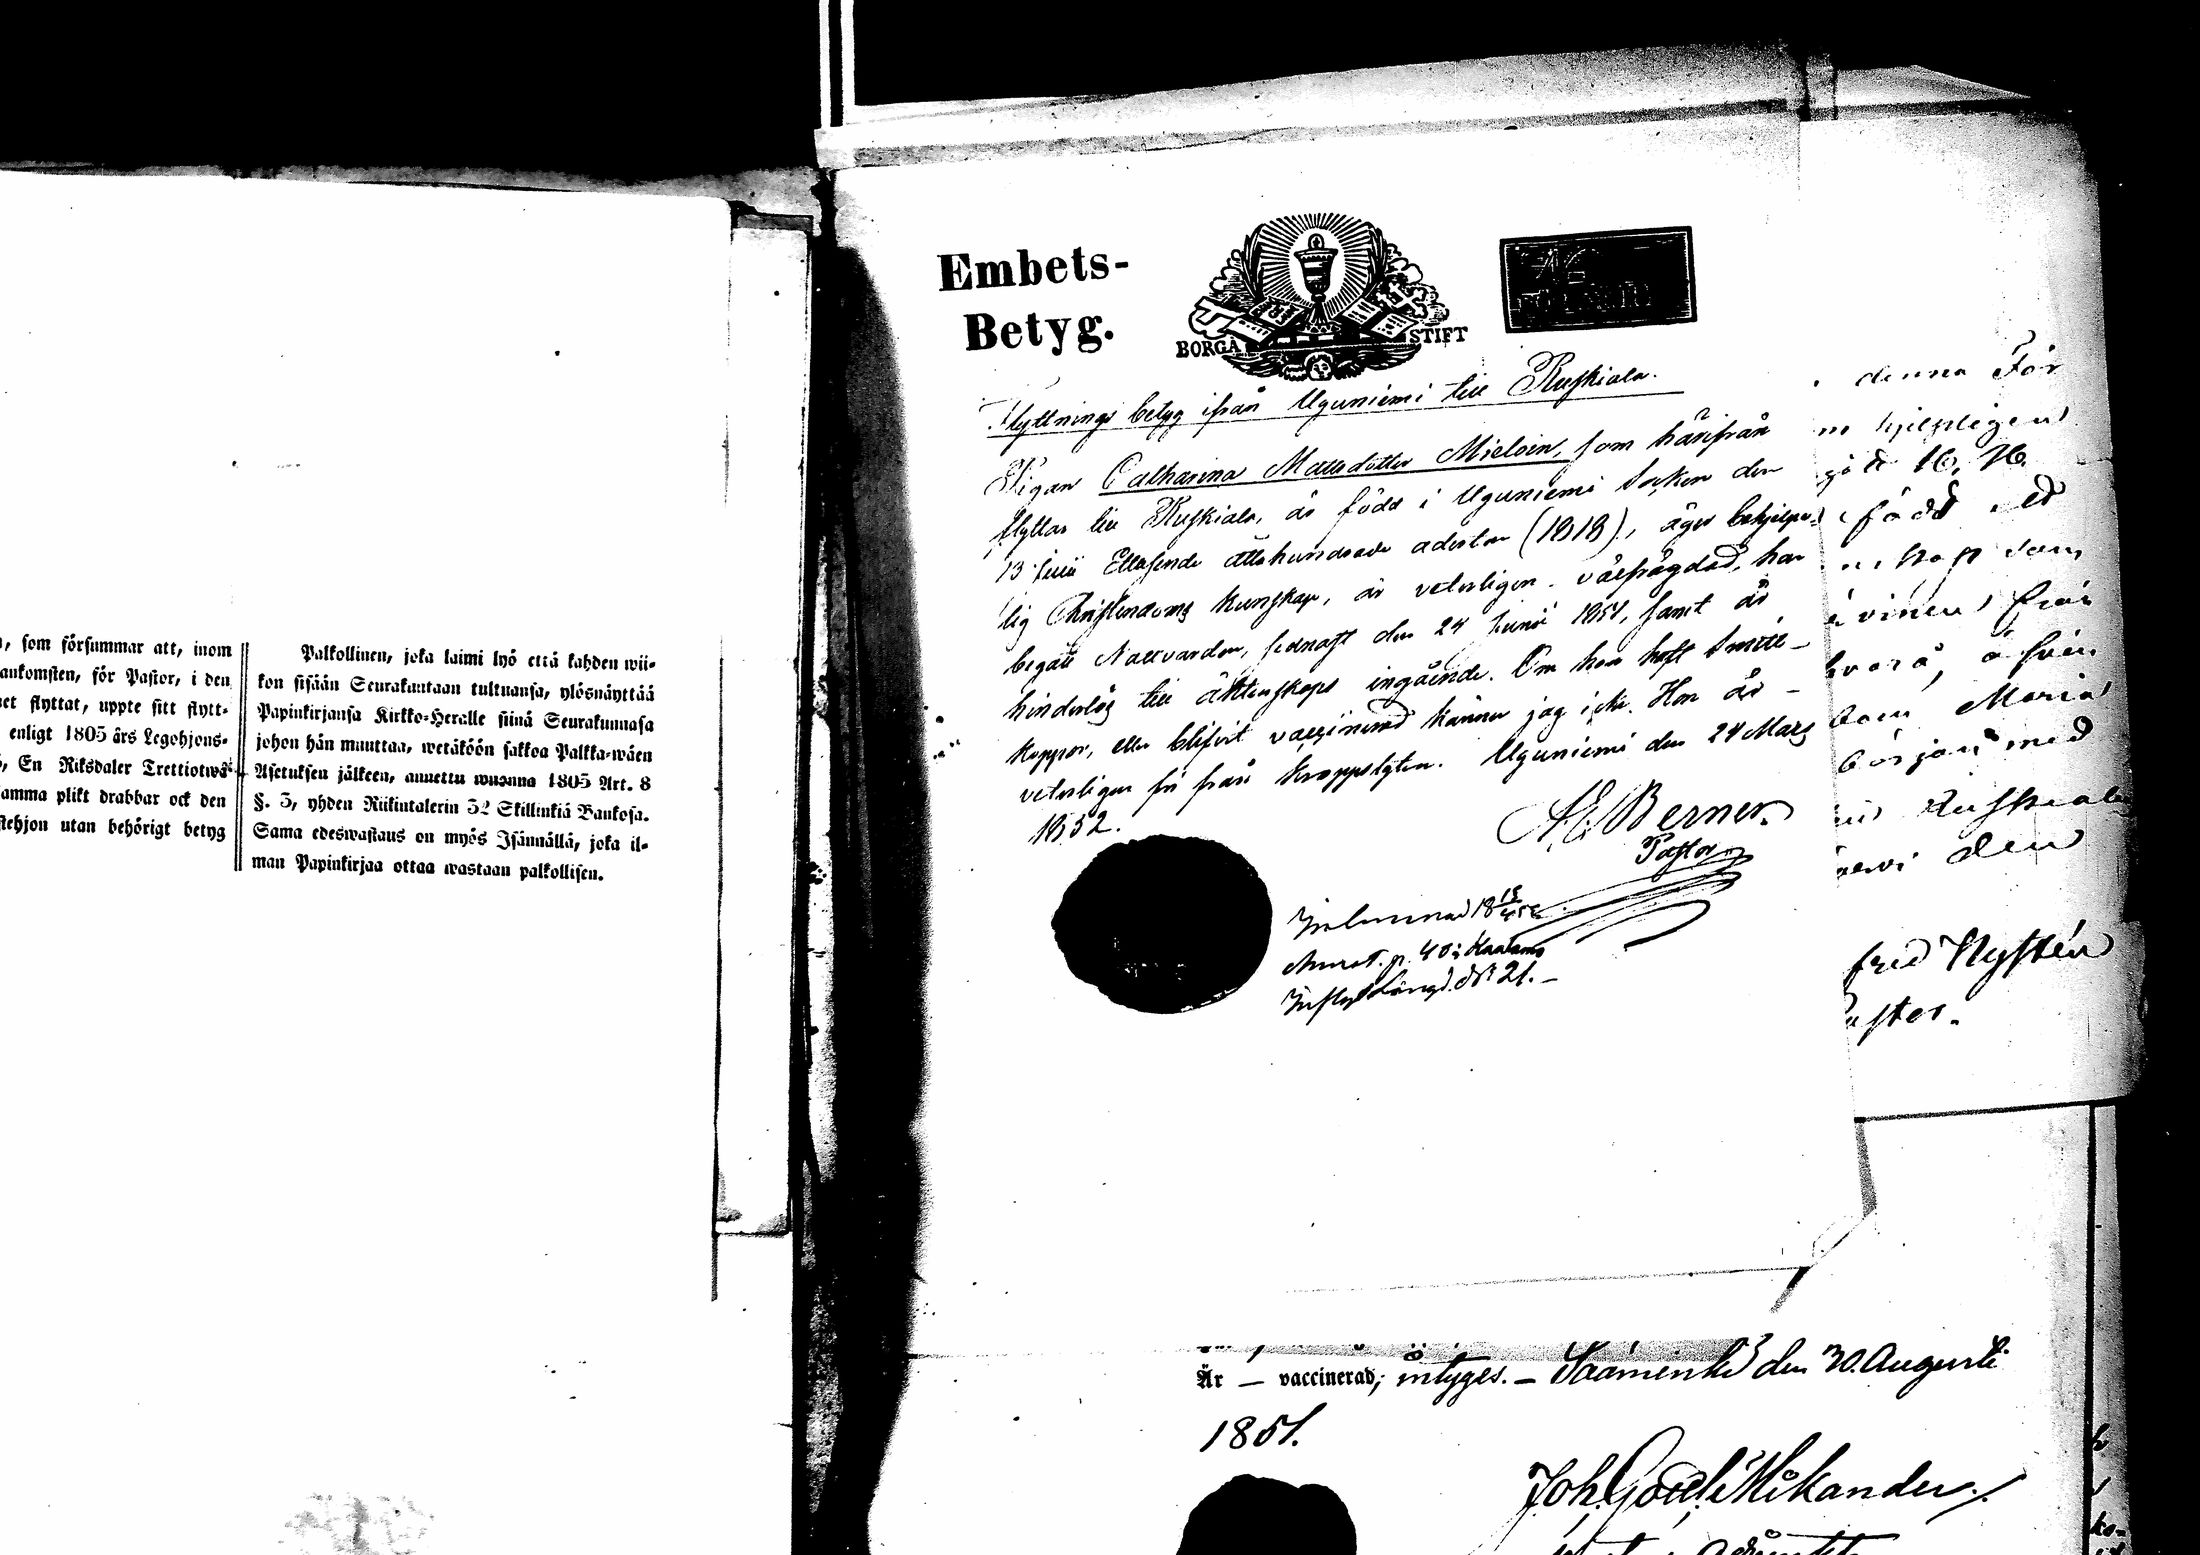 , som försummar att, inom
ankomsten, för Pastor, i den
et flyttat, uppte sitt flytt-
enligt 1805 års Legohjons-
, En Riksdaler Trettiotwå
amma plikt drabbar ock den
stehjon utan behörigt betyg
Palkollinen, joka laimi lyö että kahden wii-
kon sisään Seurakuntaan tultuansa, ylösnäyttää
Papinkirjansa Kirkko-Heralle siinä Seurakunnasa
johon hän muuttaa, wetäköön sakkoa Palkka-wäen
Asetuksen jälkeen, annettu wuonna 1805 Art. 8
§. 3, yhden Riikintalerin 32 Skillinkiä Bankosa.
Sama edeswastaus on myös Isännällä, joka il-
man Papinkirjaa ottaa wastaan palkollisen.
Embets-
Betyg.
BORGÅ STIFT
Flyttnings betyg ifrån Uguniemi till Ruskiala.
Pigan Catharina Mattsdotter Mieloin, som härifrån
flyttar till Ruskiala, är född i Uguniemi Socken den
13 Ettusende åttahundrade aderton (1818), äger behjelp-
lig Christendoms kunskap, är veterligen välfrägdad, har
begått Nattvarden, sednast den 24 Junii 1851, samt är
hinderlös till äktenskaps ingående. Om hon haft Smitt-
koppor, eller blifvit vaccinerad känner jag icke. Hon är -
veterligen fri från kroppslyten. Uguniemi den 24 Mars
1852.
A. E. Berner.
Pastor
Inlemnad 18
p. 40; Kaalamo
Inflyttn Längd. № 21. -
denna För
hjelpligen
född
som
från
Maria
början med
Ruskiala
den
fred Nystén
astor.
Är — vaccinerad; intyges. - Sääminki den 30. Augusti
1851.
Joh. Gottl. Mikander.